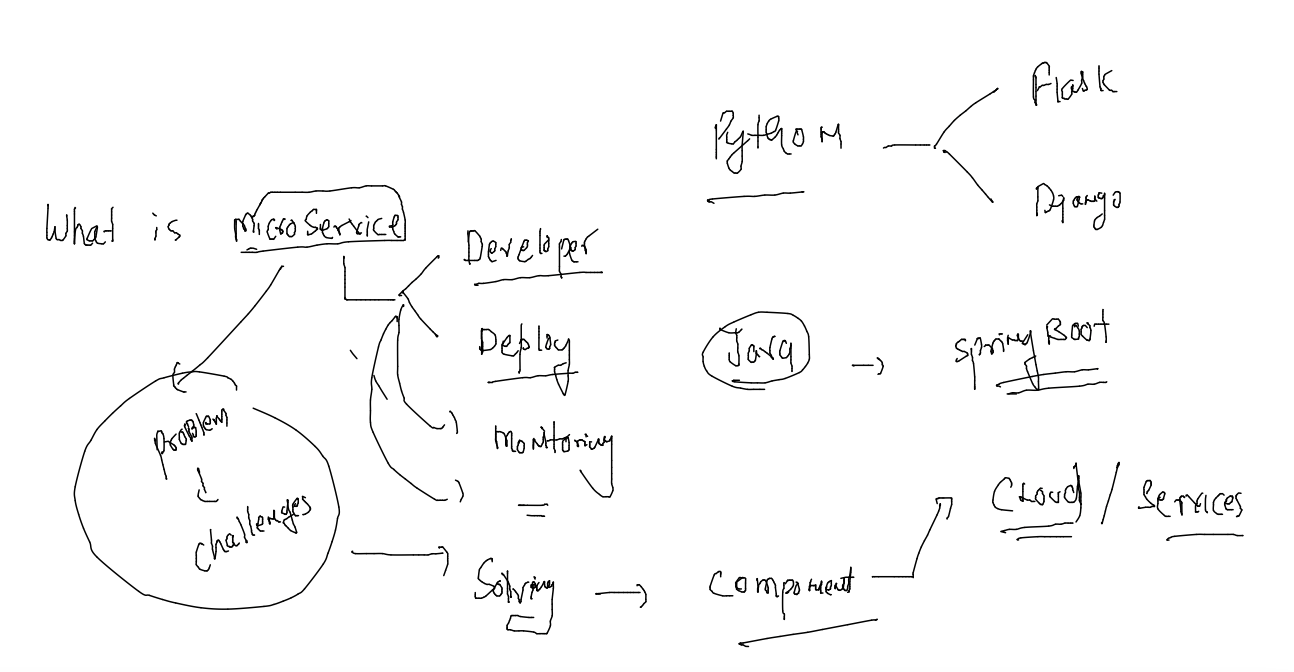 What is MicroService
Developer
Deploy
Monitoring
=
Problem
Challenges
Solving
Component
Cloud / Services
Python
Flask
Django
Java
Spring Boot